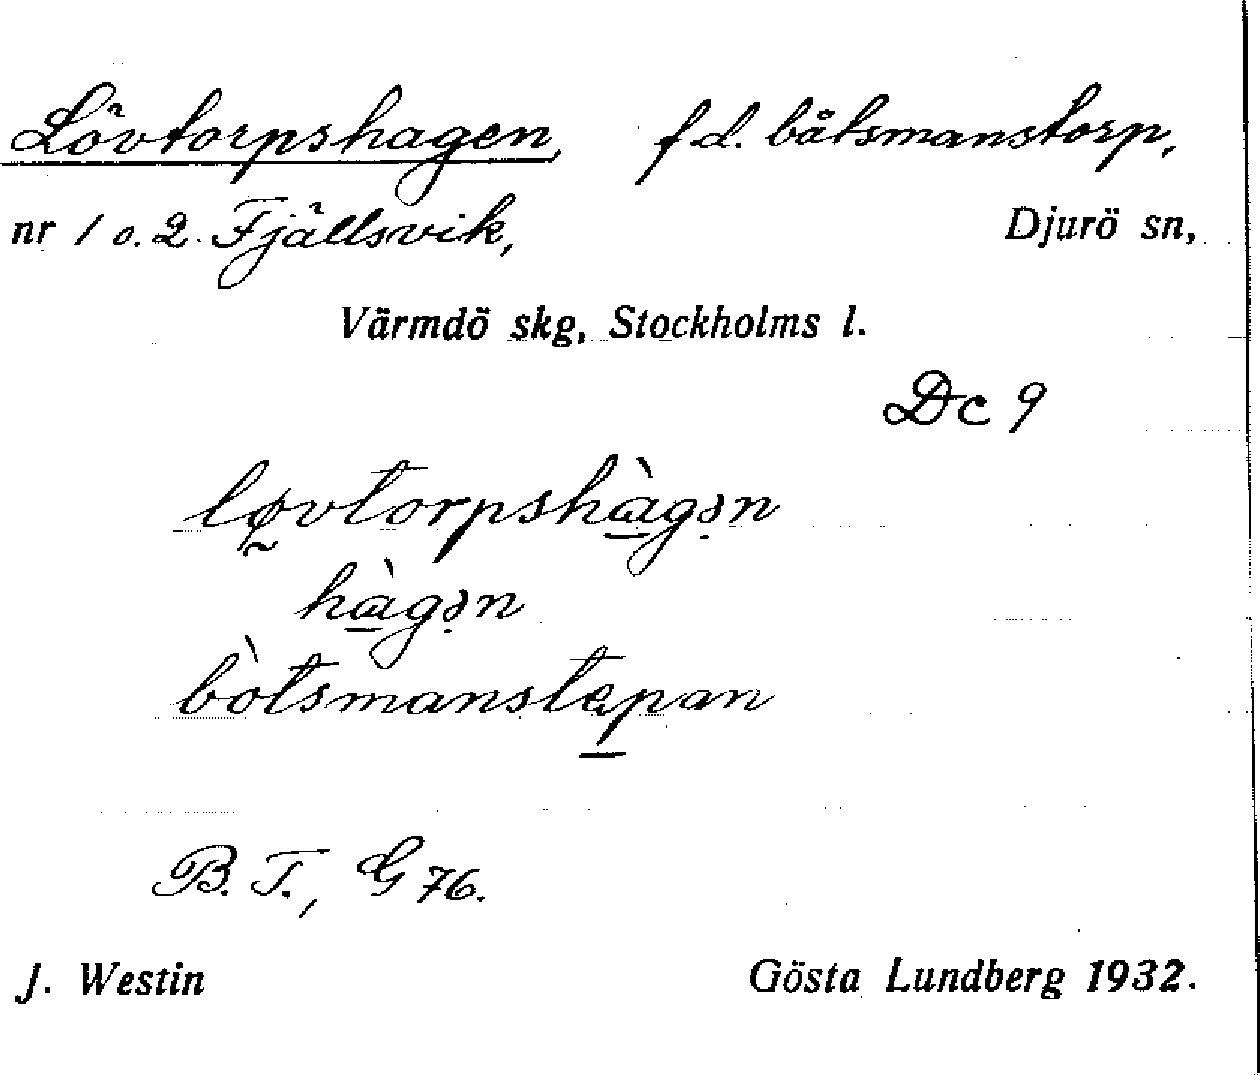 Lövtorpshagen, f.d. båtsmanstorp,
nr 1 o. 2 Fjällsvik, Djurö sn,
Värmdö skg, Stockholms l.
Dc 9
løvtorpshàgən
hàgən
bòtsmanstepan
B. T., G 76.
J. Westin Gösta Lundberg 1932.